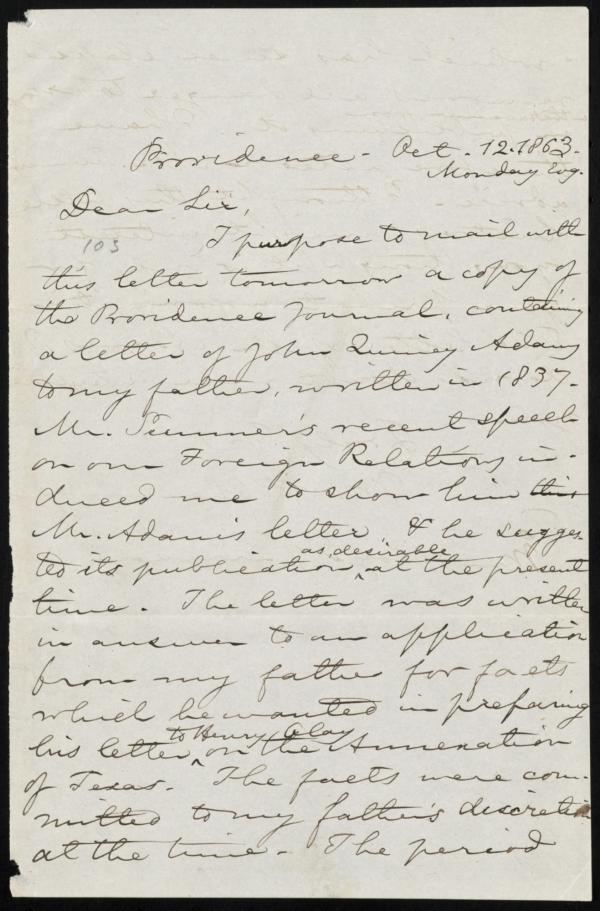 Providence - Oct. 12. 1863.
Monday Evg.
Dear Sir,
103
I purpose to mail with
this letter tomorrow a copy of
the Providence Journal, containing
a letter of John Quincy Adams
to my father, written in 1837.
Mr. Sumner's recent speech
on our Foreign Relations in-
duced me to show him this
Mr. Adams's letter, & he sugges-
ted its publication, as desirable at the present
time. The letter was written
in answer to an application
from my father for facts
which he wanted in preparing
his letter to Henry Clay on the Annexation
of Texas. The facts were com-
mitted to my father's discretion
at the time. The period